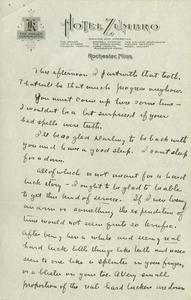 HOTEL ZUMBRO
Rochester, Minn.
This afternoon I part with that tooth.
That will be that much progress anyhow.
You must come up here some time - I
wouldn't be a bit surprised if your
bad spells were teeth.
I'll be so glad darling to be back with
you and have a good sleep. I can't sleep
for a darn.
All of which is not meant for a hard
luck story - I ought to be glad to be able
to get this kind of service. If I was losing
an arm or something the expenditure of
time would not seem quite so terrific.
After being here a while and seeing real
hard luck bill things like hell and more
seem to one like a splinter in your finger,
or a blister on your toe. A very small
proportion of the real hard luckers are down